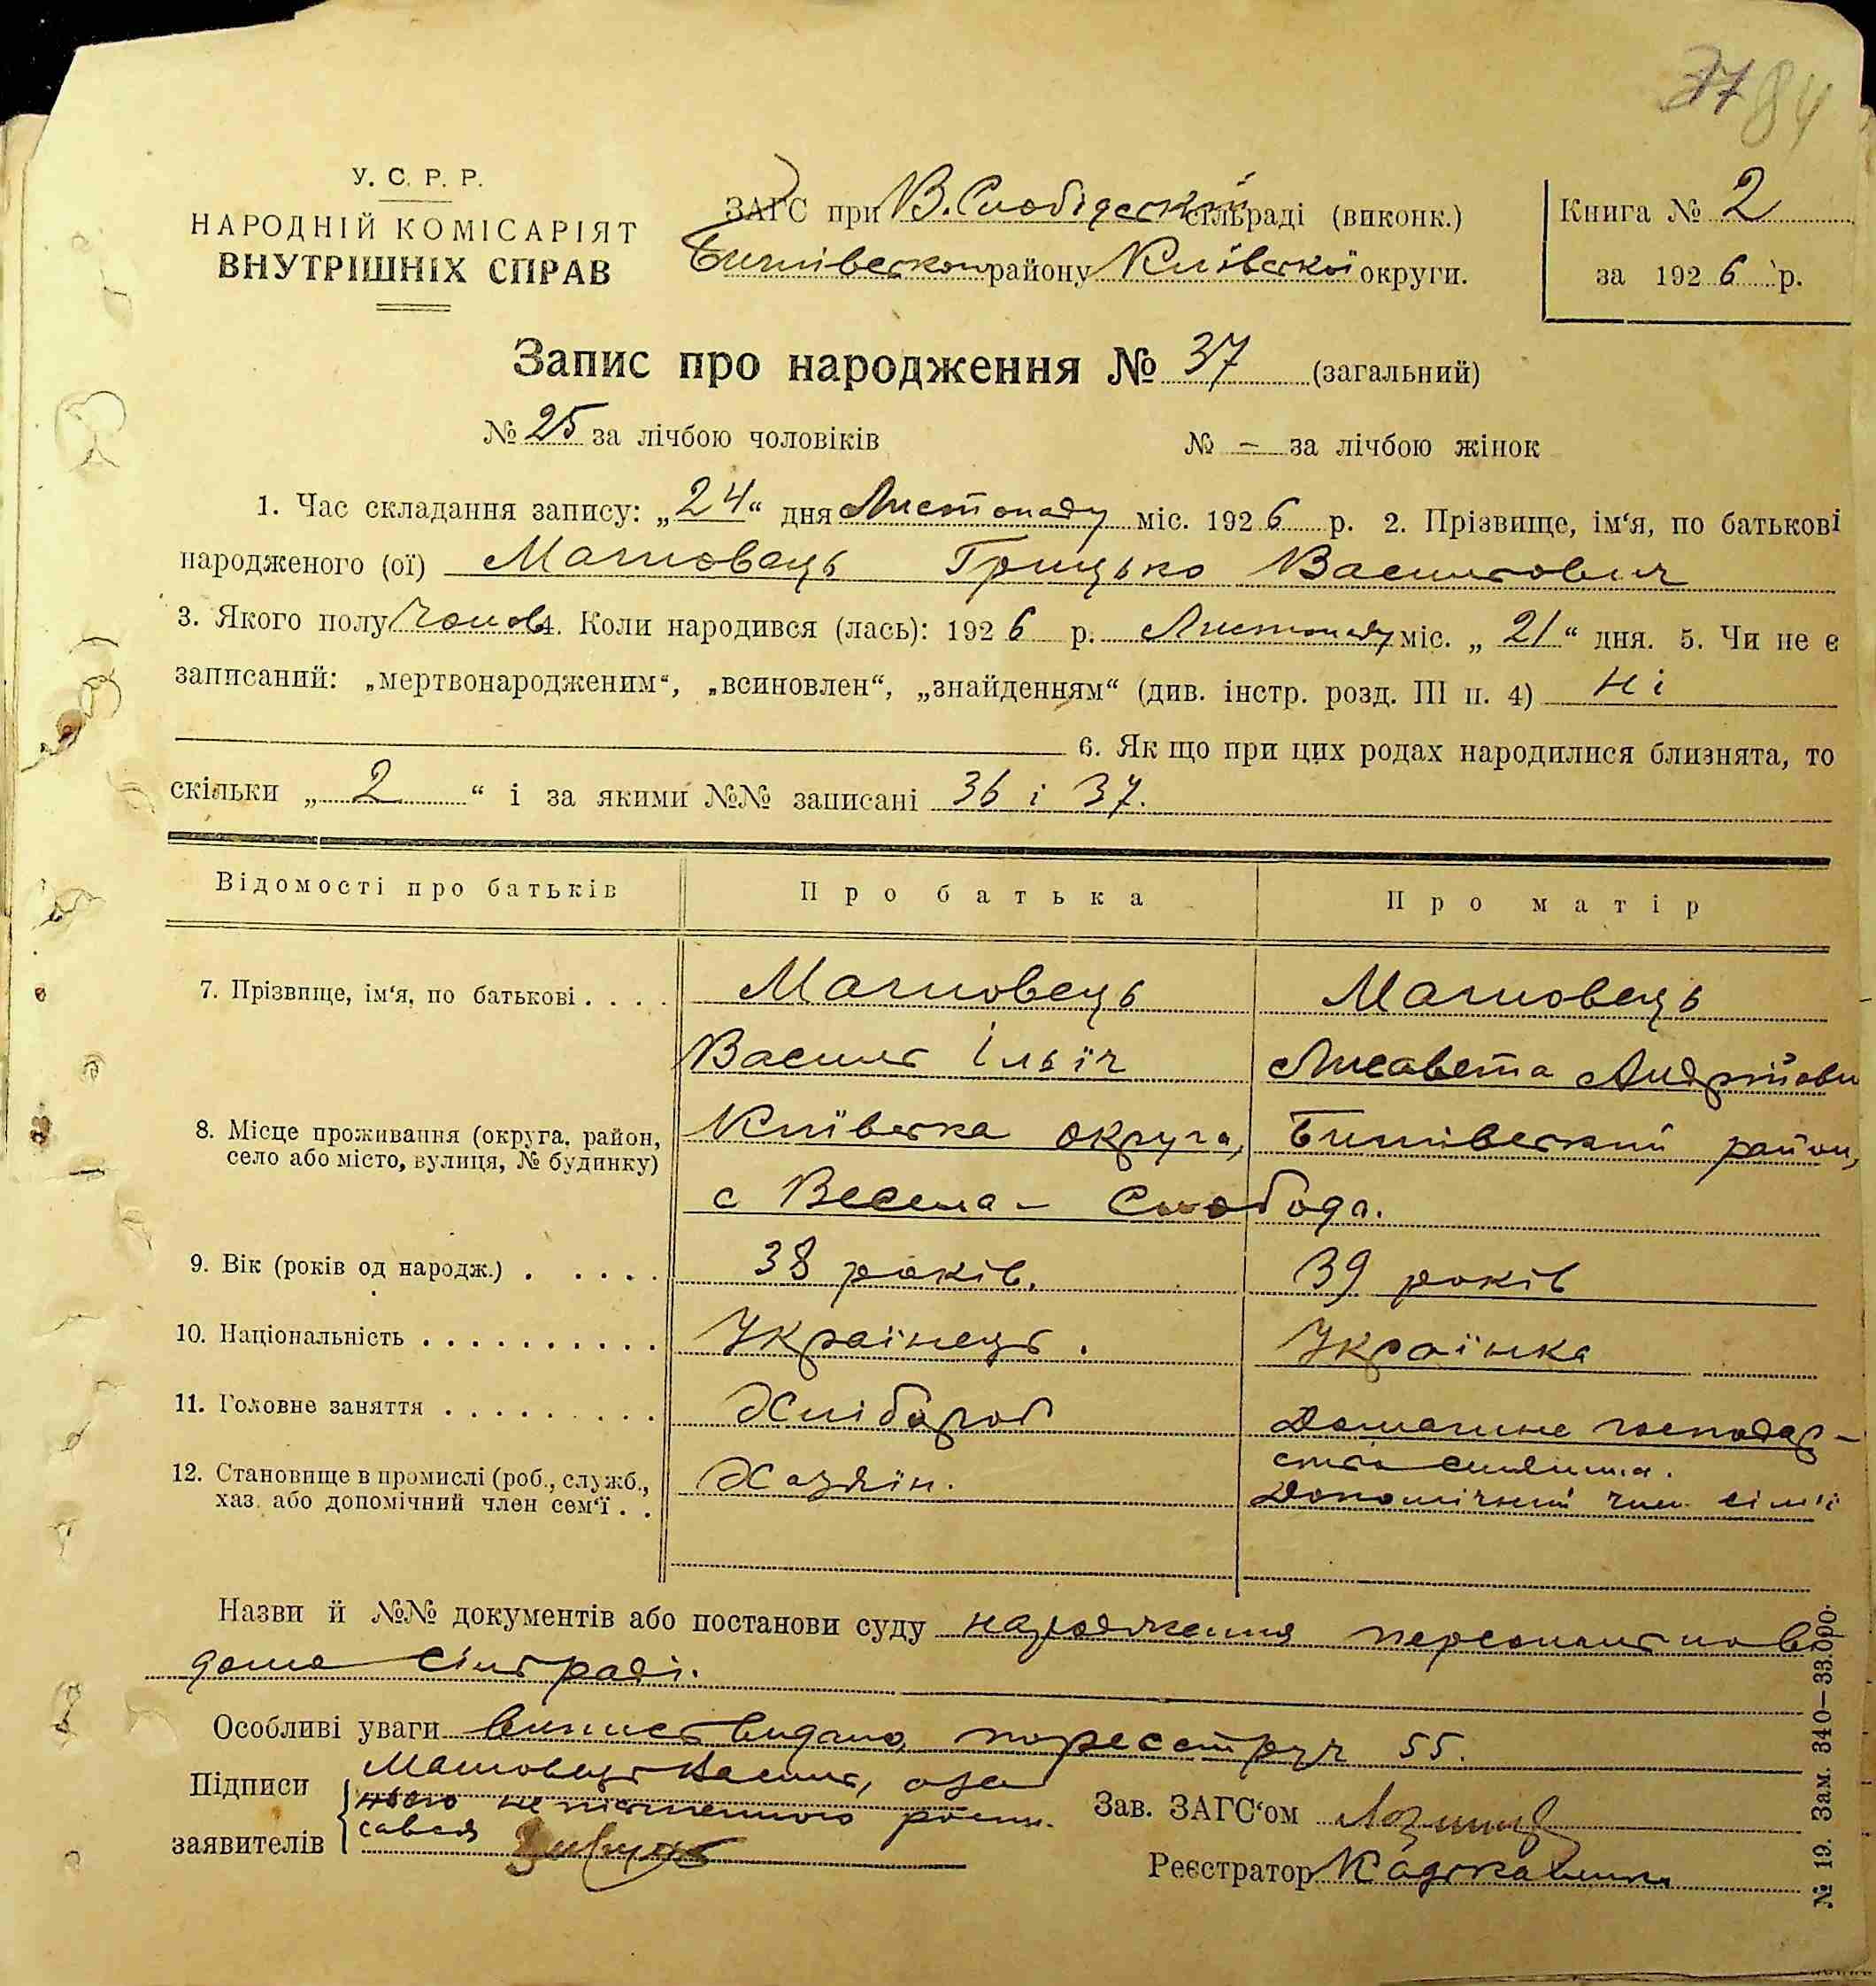 37 84
У. С. Р. Р.
НАРОДНІЙ КОМІСАРІЯТ
ВНУТРІШНІХ СПРАВ
ЗАГС при В. Слобідській сільраді (виконк.)
району Київської округи.
Книга № 2
за 1926 р.
Запис про народження № 37 (загальний)
№ 25 за лічбою чоловіків № – за лічбою жінок
1. Час складання запису: „24“ дня Листопаду міс. 1926 р. 2. Прізвище, ім‘я, по батькові
народженого (ої) Малновець Грицько Васильович
3. Якого полу чолов. 4. Коли народився (лась): 1926 р. Листопаду міс. „21“ дня. 5. Чи не є
записаний: „мертвонародженим“, „всиновлен“, „знайденням“ (див. інстр. розд. III п. 4) Ні
6. Як що при цих родах народилися близнята, то
скільки „2“ і за якими №№ записані 36 і 37.
Відомості про батьків Про батька Про матір
7. Прізвище, ім‘я, по батькові . . . . Малновець Малновець
Василь Ільїч Лисавета Андріїови
8. Місце проживання (округа, район, Київська округа, район,
село або місто, вулиця, № будинку)
с Весела – Слобода.
9. Вік (років од народж.) . . . . . 38 років. 39 років
10. Національність . . . . . . . . . . Українець. Українка
11. Головне заняття . . . . . . . . . Хлібороб Домашнє господар-
12. Становище в промислі (роб., служб., Хазяїн.
хаз. або допомічний член сем‘ї . . Допомічний член сім'ї
Назви й №№ документів або постанови суду народження персонально ві
дома сільраді.
Особливі уваги випись видано по реєстру ч 55.
Підписи Василь, а за
нього неписьменного розпи-
заявителів { сався
Зав. ЗАГС‘ом
Реєстратор
№ 19. Зам. 340—33.000.